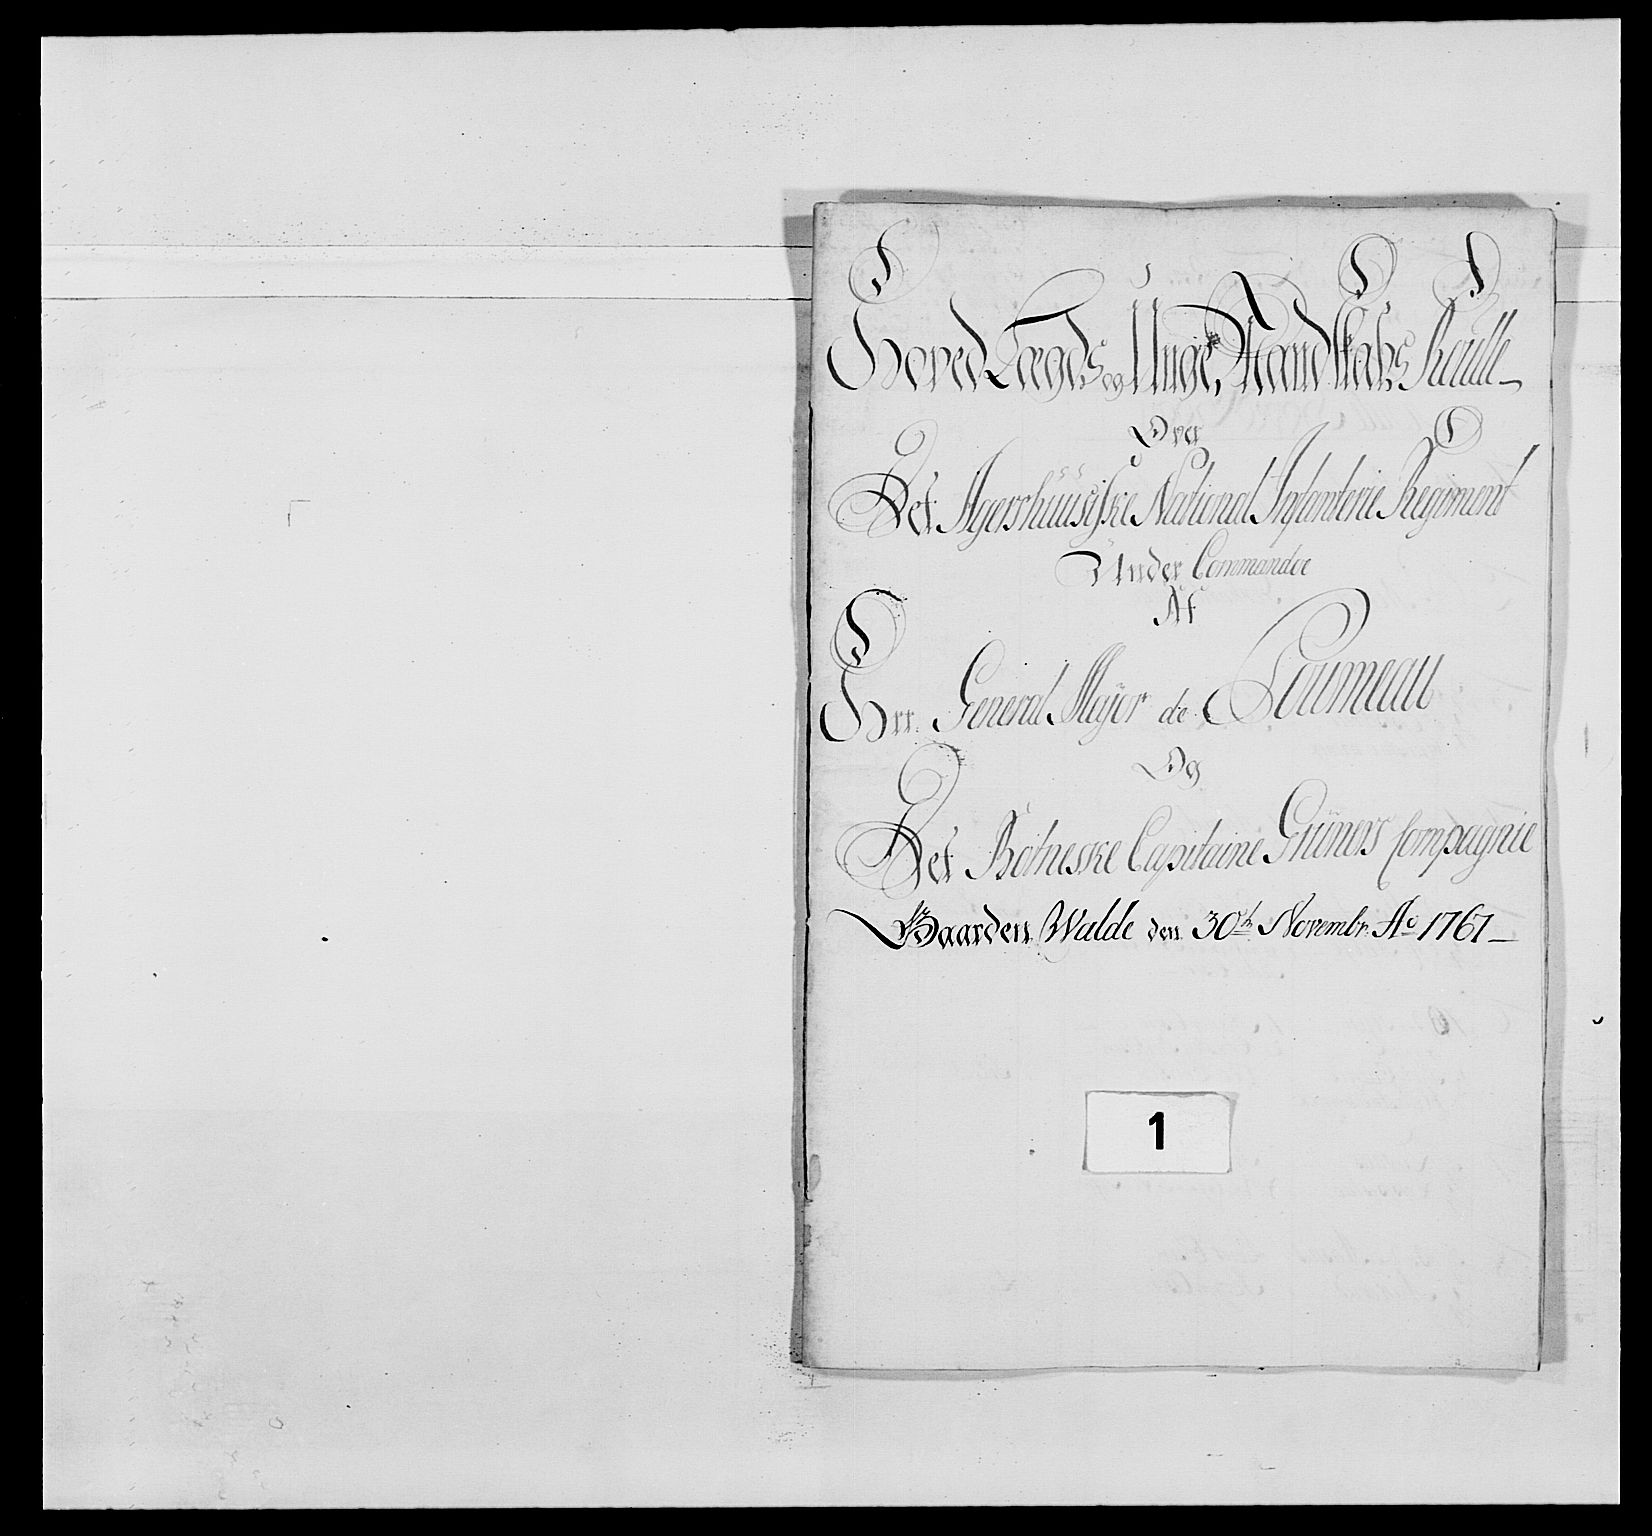 Hoved Lægds og Unge Mandskabs Rulle
Over
Det Agershuusiske National Infanterie Regiment
Under Commandoe
Af
Hrr. General Major de Coumeau
Og
Det Botneske Capitaine Grüners Compagnie
Gaarden Walde den 30th Novembr. Ao 1767
1